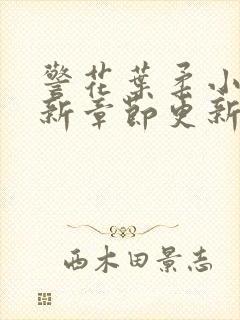 警花葉柔小
新章節更新
西木田景志